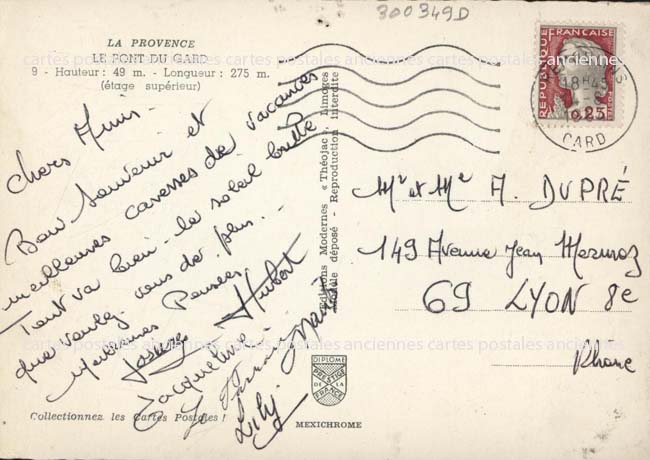 300349D
LA PROVENCE
LE PONT DU GARD
9 - Hauteur : 49 m. - Longueur : 275 m.
(étage supérieur)
Chers Amis
Bon Souvenir et
meilleures caresses de vacances
Tout va bien. le soleil brille
que voulez-vous de plus...
Meilleures Pensées
Hubert
Josiane
Jacqueline
Lily
Editions Modernes « Théojac », Limoges
déposé - Reproduction Interdite
REPUBLIQUE FRANÇAISE
0,25
18H45
GARD
Mr et Me A. DUPRÉ
149 Avenue Jean Mermoz
69 LYON 8e
Rhône
DIPLOME
PRESTIGE
DE LA
FRANCE
Collectionnez les Cartes Postales !
MEXICHROME
cartes postales anciennes cartes postales anciennes cartes postales anciennes
cartes postales anciennes cartes postales anciennes cartes postales anciennes